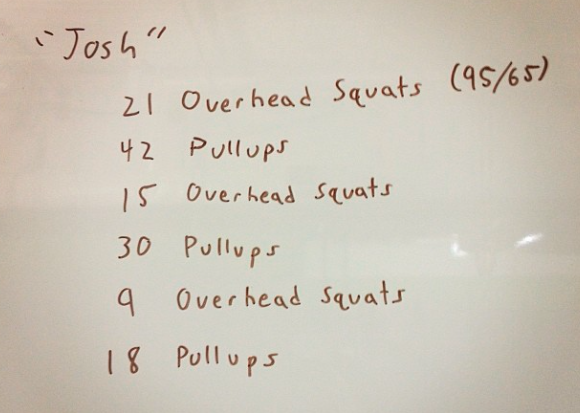 "Josh"
21 Overhead Squats (95/65)
42 Pullups
15 Overhead Squats
30 Pullups
9 Overhead Squats
18 Pullups